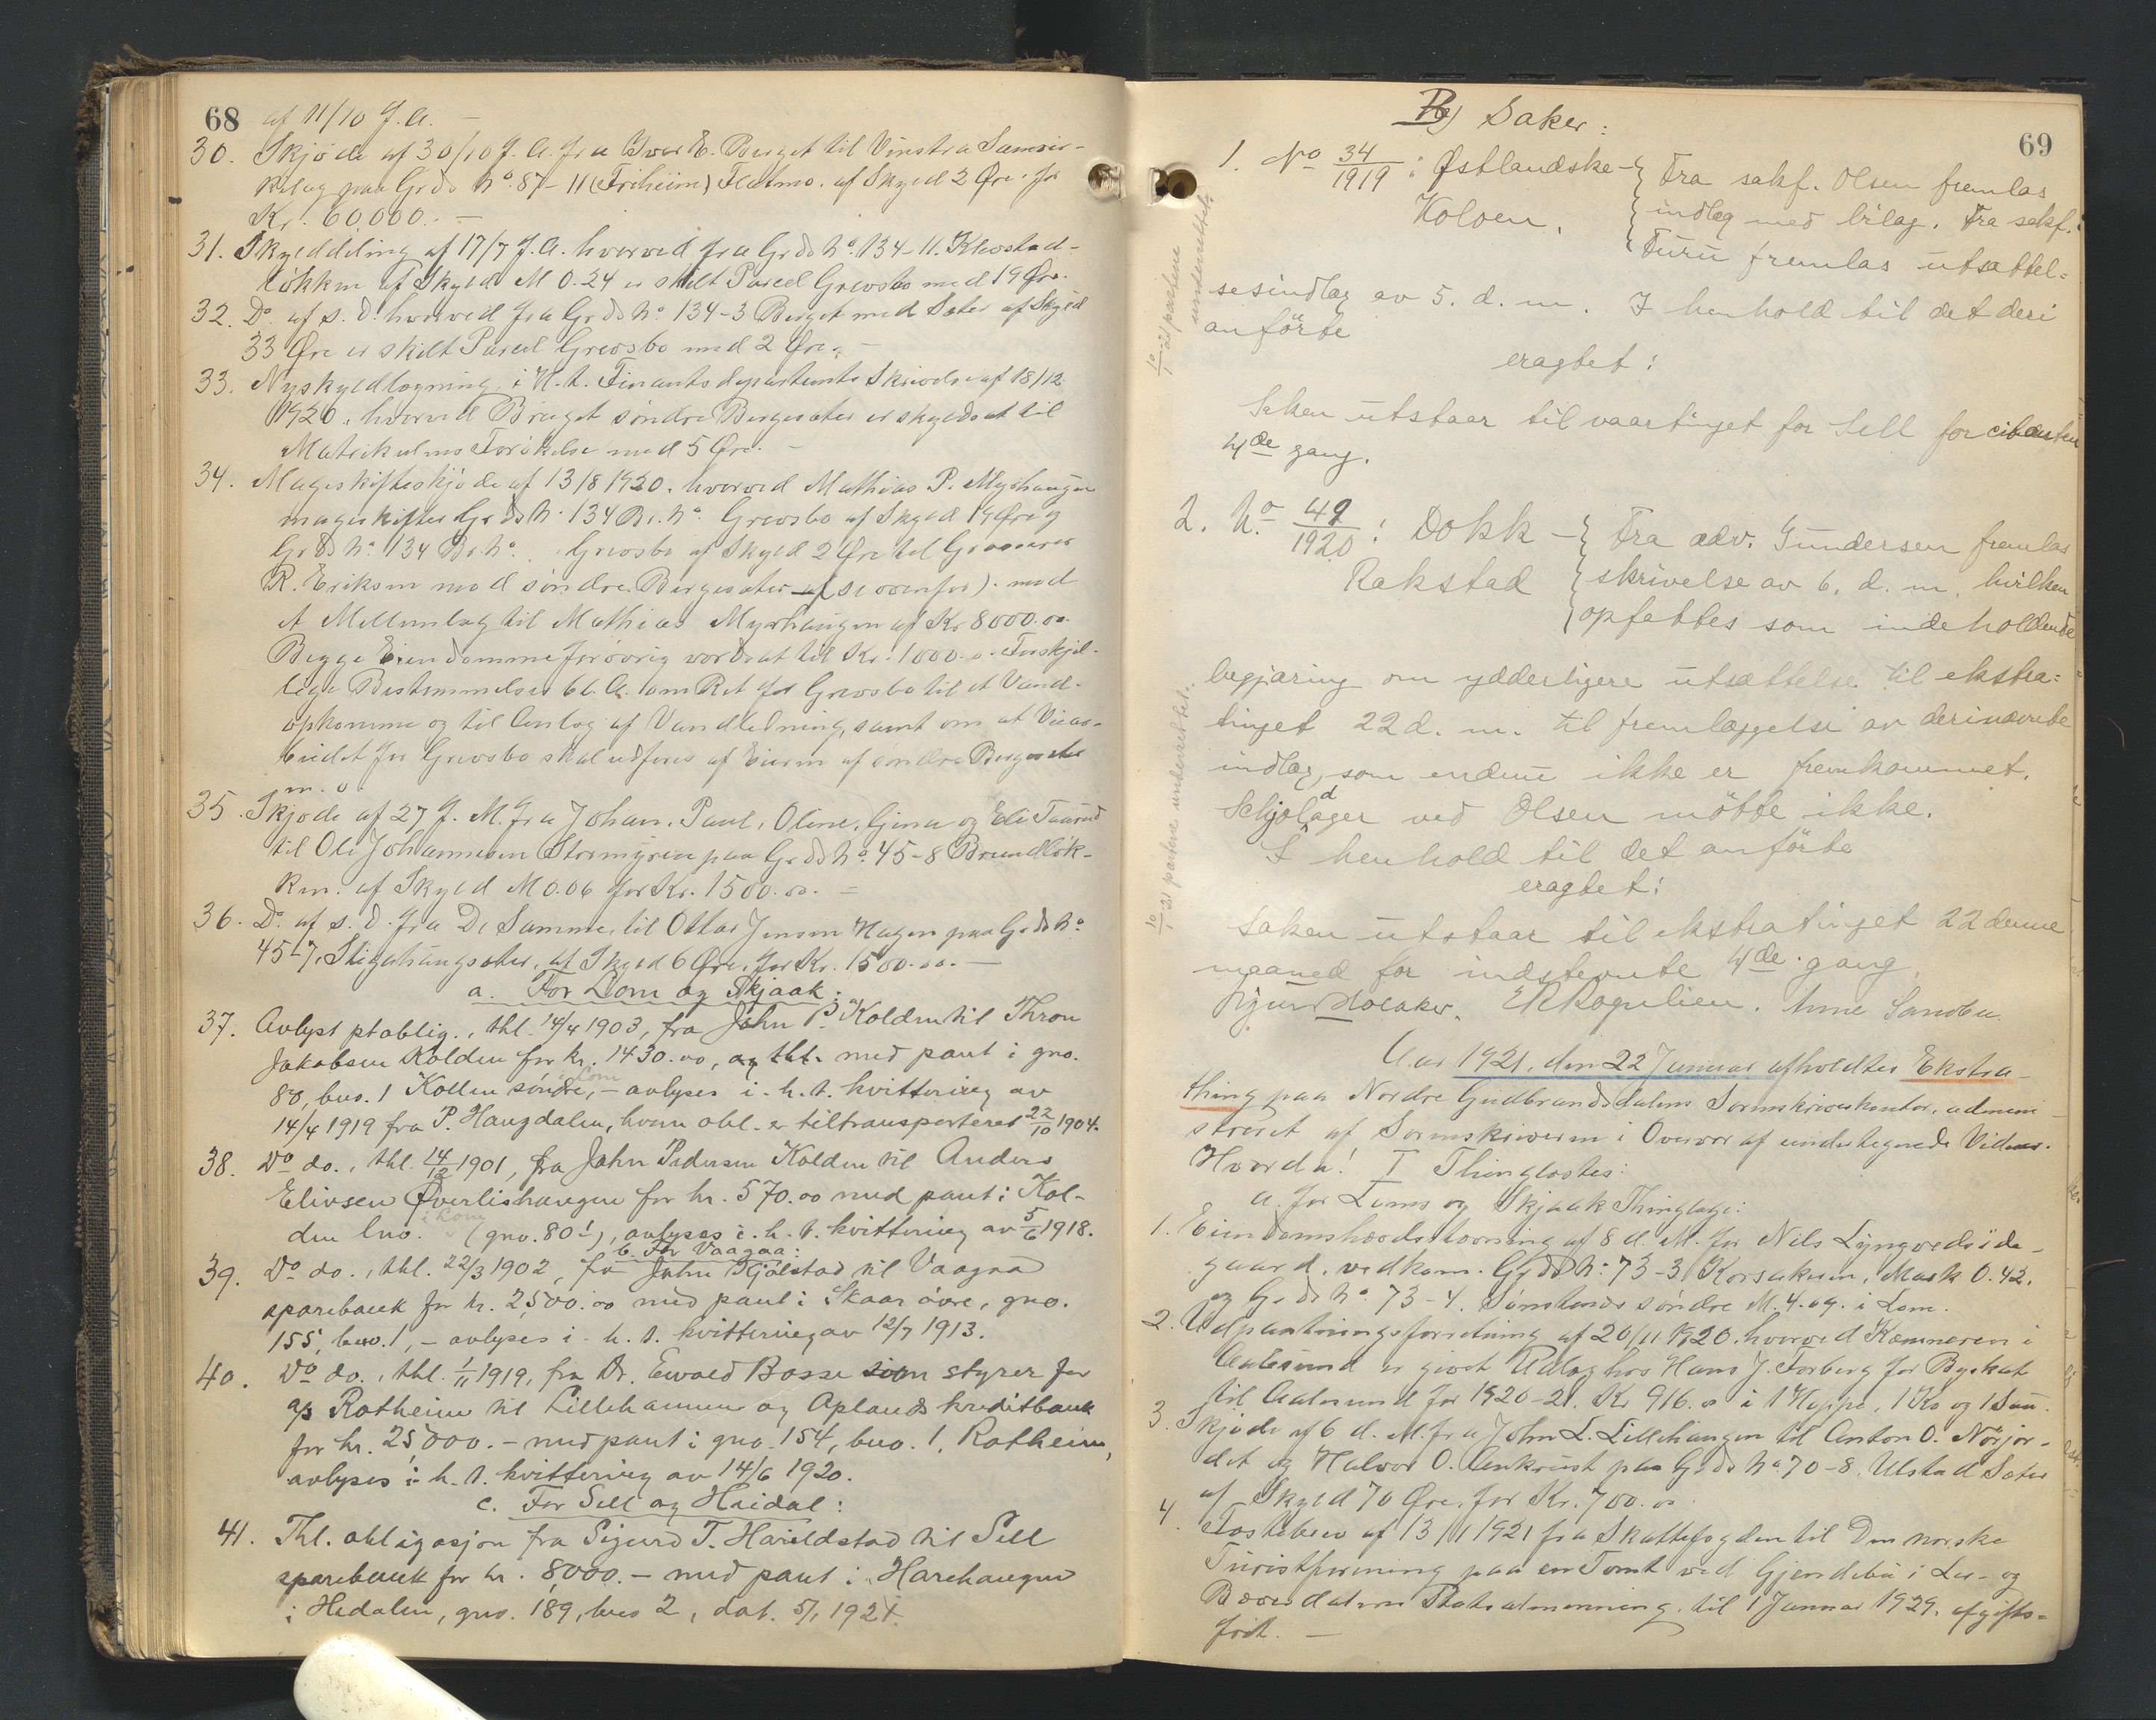 68
af 11/10 f. A. —
30. Skjøde af 30/10 f. A. fra Iver E. Berget til Vinstra Samvir-
kelag paa Grds No. 87-11 (Friheim) Flatmo. af Skyld 2 Øre. for
Kr. 60,000. —
31. Skylddeling af 17/7 f. A. hvorved fra Grds No. 134-11.
løkken af Skyld M 0.24 er skilt Parcel Grevsbo med 19 Øre.
32. Do. af s. D. hvorved fra Grds No. 134-3 Berget med Sæter af Skyld
33 Øre er skilt Parcel Grevsbo med 2 Øre. —
33. Nyskyldlægning i H. t. Finantsdepartements Skrivelse af 18/12
1920. hvorved Bruget søndre Bergesæter er skyldsat til
Matrikulens Forøkelse med 5 Øre. —
34. Mageskifteskjøde af 13/8 1920. hvorved Mathias P. Myrhaugen
mageskifter Grds N. 134 Br. No. Grevsbo af Skyld 19 Øre og
Grds No. 134 Br. No. Grevsbo af Skyld 2 Øre til
R. Eriksen mod søndre Bergesæter (se ovenfor). mod
et Mellemlag til Mathias Myrhaugen af Kr 8000.00
Begge Eiendomme forøvrig værdsat til Kr. 1000.00. Forskjel-
lige Bestemmelser bl. A. om Ret for Grevsbo til et Vand-
opkomme og til Anlæg af Vandledning, samt om at
for Grevsbo skal udføres af Eieren af søndre Bergesæter
m. v.
35. Skjøde af 27 f. M. fra Johan, Paul, Oline, Gina og Eli
til Ole Johannesen Stormyren paa Grds No. 45-8 Brendløk-
ken. af Skyld M 0.06 for Kr. 1500.00. —
36. Do. af s. D. fra De Samme, til Ottar Jensen Hagen paa Grds No
45-7, Stigerhaugsæter, af Skyld 6 Øre, for Kr. 1500.00. —
a. For Lom og Skjaak:
37. Avlyst ptoblig., thl. 14/4 1903, fra John P. Kolden til Thron
Jakobsen Kolden for kr. 1430.00, og tht. med pant i gno.
80, bno. 1 Kolden søndre, i Lom — avlyses i. h. t. kvittering av
14/4 1919 fra P. Haugdalen, hvem obl. er tiltransporteret 22/10 1904.
38. Do do., thl. 14/12 1901, fra John Pedersen Kolden til Anders
Elivsen Øverlishaugen for kr. 570.00 med pant i Kol-
den bno. i Lom (gno. 80¹), avlyses i. h. t. kvittering av 5/6 1918.
b. For Vaagaa:
39. Do do., thl. 22/3 1902, fra John Hjølstad til Vaagaa
sparebank for kr. 2,500.00 med pant i Skaar øvre, gno.
155, bno. 1, — avlyses i. h. t. kvittering av 12/7 1913.
40. Do do., thl. 1/11 1919, fra Dr. Ewald Bosse som styrer for
a/s Rotheim til Lillehammer og Oplands kreditbank
for kr. 25,000. — med pant i gno. 154, bno. 1, Rotheim,
avlyses i. h. t. kvittering av 14/6 1920.
c. For Sell og Heidal:
41. Thl. obligasjon fra Sigurd T. Harildstad til Sell
sparebank for kr. 8,000. — med pant i Harehaugen
i Hedalen, gno. 189, bno 2, dat. 5/1 1921.
69
B) Saker:
1. No 34/1919: Østlandske-
Koloen.
Fra sakf. Olsen fremlas
indlæg med bilag. Fra sakf.
Furu fremlas utsættel-
sesindlæg av 5. d. m. I henhold til det deri
anførte
eragtet:
Saken utstaar til vaartinget for Sell for citanten
4de gang.
10/1 21 partene underrettet.
2. No 49/1920: Dokk-
Rakstad
Fra adv. Gundersen fremlas
skrivelse av 6. d. m. hvilken
opfattes som indeholdende
begjæring om ydderligere utsættelse til ekstra-
tinget 22 d. m. til fremlæggelse av derinævnte
indlæg, som endnu ikke er fremkommet.
Schjoldager ved Olsen møtte ikke.
I henhold til det anførte
eragtet:
Saken utstaar til ekstratinget 22 denne
maaned for indstevnte 4de gang.
10/1 21 partene underrettet.
Sigurd Holaker. Anne Sandbu.
Aar 1921, den 22 Januar afholdtes Ekstra-
thing paa Nordre Gudbrandsdalens Sorenskriverkontor, admini-
streret af Sorenskriveren i Overvær af undertegnede Vidner.
Hvorda! I Thinglæstes:
a. for Loms og Skjaak Thinglag:
1. Eiendomshævdstævning af 8 d. M. for Nils Lyngvedside-
gaard, vedkom. Grds No: 73-3 Korsakeren, Mark 0.42.
og Grds No. 73-4. Sønstenes søndre M. 4.09. i Lom.
2. Udpantningsforretning af 20/11 1920. hvorved Kæmneren i
Aalesund er givet Udlæg hos Hans J. Forberg for Byskat
til Aalesund for 1920-21. Kr 916.00 i 1 Hoppe, 1 Ko og 1 Sau.
3. Skjøde af 6 d. M. fra John L. Lillehaugen til Anton O. Nørjor-
det og Halvor O. Ankrust paa Grds No. 70-8. Ulstad Sæter
af Skyld 70 Øre. for Kr. 700.00
4. Fæstebrev af 13/1 1921 fra Skattefogden til Den norske
Turistforening paa en Tomt ved Gjendebu i Lær- og
Bæverdalens Statsalmenning. til 1 Januar 1929. afgifts-
frit. —